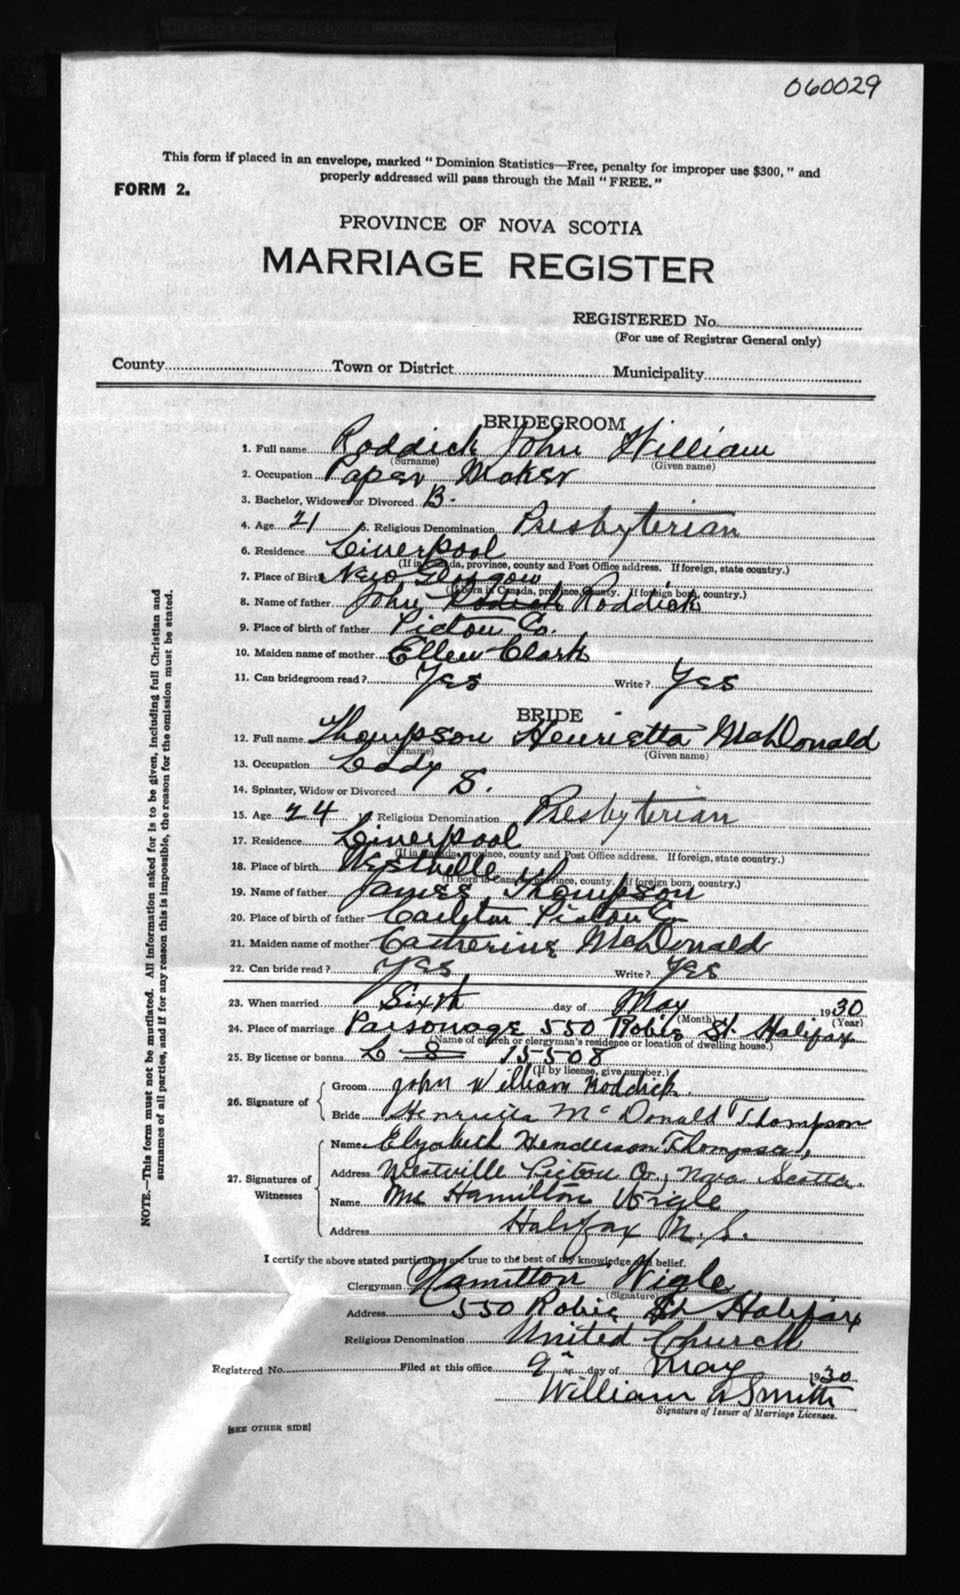 060029
This form if placed in an envelope, marked "Dominion Statistics—Free, penalty for improper use $300," and
properly addressed will pass through the Mail "FREE."
FORM 2.
PROVINCE OF NOVA SCOTIA
MARRIAGE REGISTER
REGISTERED No.
(For use of Registrar General only)
County Town or District Municipality
BRIDEGROOM
1. Full name Roddick John William
(Surname) (Given name)
2. Occupation Paper Maker
3. Bachelor, Widower or Divorced B.
4. Age 21 5. Religious Denomination Presbyterian
6. Residence Liverpool
(If in Canada, province, county and Post Office address. If foreign, state country.)
7. Place of Birth New Glasgow
(If born in Canada, province, county. If foreign born, country.)
8. Name of father John Rodick Roddick
9. Place of birth of father Pictou Co.
10. Maiden name of mother Ellen Clark
11. Can bridegroom read? Yes Write? Yes
BRIDE
12. Full name Thompson Henrietta McDonald
(Surname) (Given name)
13. Occupation Lady
14. Spinster, Widow or Divorced S.
15. Age 24 16. Religious Denomination Presbyterian
17. Residence Liverpool
(If in Canada, province, county and Post Office address. If foreign, state country.)
18. Place of birth Westville
(If born in Canada, province, county. If foreign born, country.)
19. Name of father James Thompson
20. Place of birth of father Carleton Pictou Co
21. Maiden name of mother Catherine McDonald
22. Can bride read? Yes Write? Yes
23. When married Sixth day of May 1930
(Month) (Year)
24. Place of marriage Parsonage 550 Robie St. Halifax
(Name of church or clergyman's residence or location of dwelling house.)
25. By license or banns L 15508
(If by license, give number.)
26. Signature of Groom John William Roddick.
Bride Henrietta McDonald Thompson
27. Signatures of Witnesses
Name Elizabeth Henderson Thompson,
Address Westville Pictou Co, Nova Scotia.
Name Mrs Hamilton Wigle
Address Halifax N.S.
I certify the above stated particulars are true to the best of my knowledge and belief.
Clergyman Hamilton Wigle
(Signature)
Address 550 Robie St Halifax
Religious Denomination United Church
Registered No. Filed at this office 9 day of May 1930
William Smith
Signature of Issuer of Marriage Licenses.
[SEE OTHER SIDE]
NOTE.—This form must not be mutilated. All information asked for is to be given, including full Christian and
surnames of all parties, and if for any reason this is impossible, the reason for the omission must be stated.